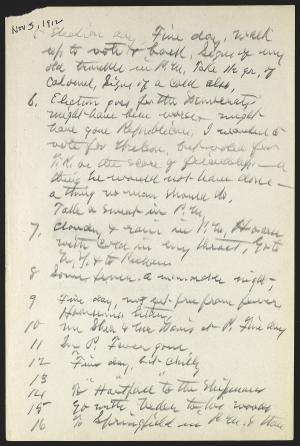 Nov 5, 1912
5 Election day, Fine day, walk
up to vote & back, Signs of my
old trouble in P.M. Take
Colonel, Signs of a cold also,
6. Election goes for the Democrats
might have been worse, might
have gone Republican, I wanted to
vote for Wilson, but voted for
T.R. on the score of friendship – a
thing he would not have done –
a thing no man should do,
Take a sweat in P.M,
7. Cloudy & rain in P.M, Hoarse
with cold in my throat, Go to
N.Y. &
8 Some fever. a miserable night,
9 Fine day, not yet free from fever
Hoarseness
10 Mr Shea & Mr Davis at R. Fine day
11 In P. Fever gone
12 Fine day, but chilly
13 " " "
14 To Hartford to the Shipmans
15 Go with to his woods
16 To Springfield in P.M. &